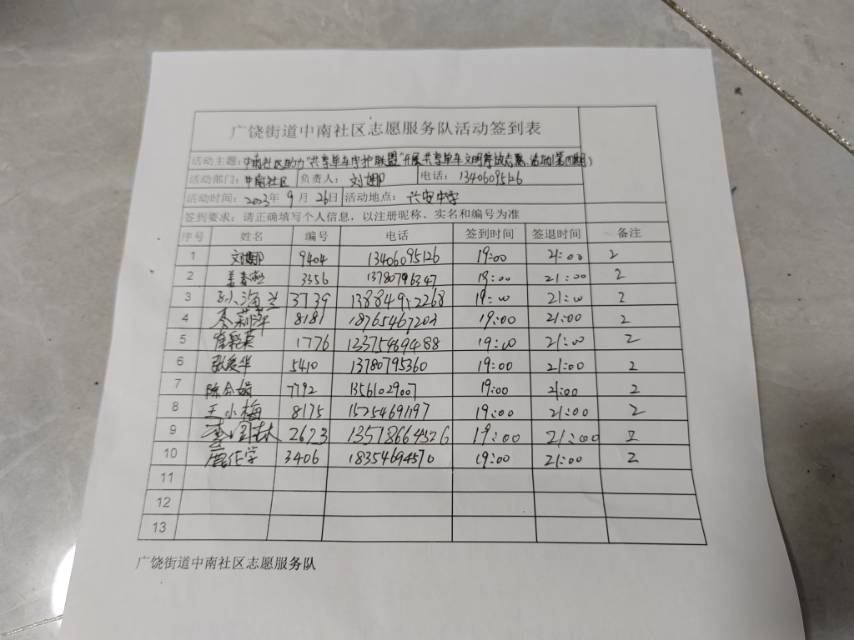 广饶街道中南社区志愿服务队活动签到表
活动主题：中南社区助力"共享单车守护联盟"开展共享单车文明 活动(第四期)
活动部门：中南社区 负责人：刘娜 电话：13406095126
活动时间：2023年9月26日 活动地点：兴安中学
签到要求：请正确填写个人信息，以注册昵称、实名和编号为准
序号 姓名 编号 电话 签到时间 签退时间 备注
1 9404 13406095126 19:00 21:00 2
2 3356 13780796347 19:00 21:00 2
3 孙海兰 3739 19:00 21:00 2
4 李莉萍 8181 18765467202 19:00 21:00 2
5 1776 19:00 21:00 2
6 张爱华 5410 13780795360 19:00 21:00 2
7 7792 19:00 21:00 2
8 王小梅 8175 15254691197 19:00 21:00 2
9 2673 19:00 21:00 2
10 3406 18354694570 19:00 21:00 2
11
12
13
广饶街道中南社区志愿服务队